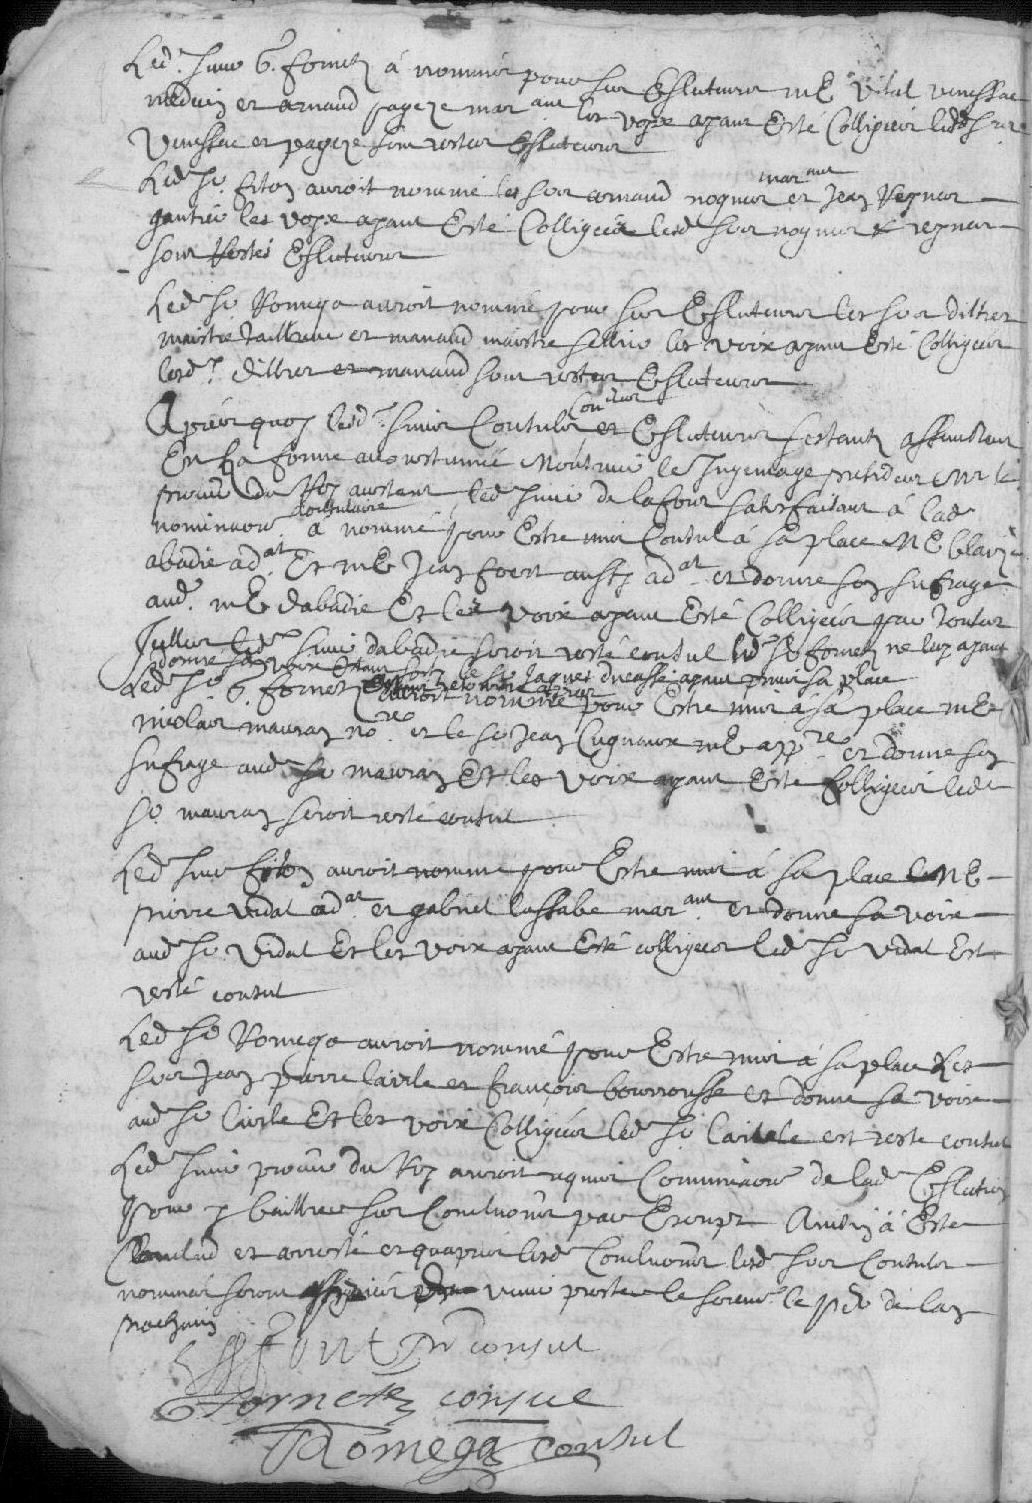 Led. sieur G. fornetz à nommé pour ses Esluteurs me Vital Venessac
medecin et arnaud pageze marant les voye ayant Esté Colligées lesd srs
Venessac et pageze sont restes Esluteurs
Led. sr. fiton auroit nommé les srs arnaud noguer marant et Jean Regner
gantier les voye ayant Esté Colligées lesd srs noguer & regner
sont Restés Esluteurs
Led. sr Romega auroit nommé pour ses Esluteurs les srs dilhet
maistre tailleur et manaud maistre sellier les voix ayant Esté Colligées
lesd. dilher et manaud sont restes Esluteurs
Apres quoy lesd. sieurs Consulz et Esluteurs s'estantz assembles
En la forme acoustumée monsieur le Jugemage presidant Mr le
procur du Roy assistant led sieur de lafont satisfaisant à lad
nominaon consulaire a nommé pour Estre mis Consul à sa place Me blaize
abadie adat Et me Jean fort aussy adat et donne son sufrage
aud. me dabadie Et les voix ayant Esté Colligées par toutes
led sieur dabadie seroit resté consul led sr fornetz ne luy ayant
donne sa voix Estant sorti le sr Jaques ducasse ayant prins sa place
Led. sr. G. fornetz auroit nommé pour Estre mis à sa place me
nicolas mauran nore et le sr Jean Cugnaux me appre et donne son
sufrage aud sr mauran Et les voix ayant Esté Colligées led
sr. mauran seroit resté consul
Led sieur fiton auroit nommé pour Estre mis à sa place Me
pierre vidal adat et gabriel lassabe marant et donne sa voix
aud sr vidal Et les voix ayant Esté colligées led sr vidal Est
resté consul
Led sr Romega auroit nommé pour Estre mis à sa place Les
srs Jean pierre lairle et françois bourrousse et donne sa voix
aud sr lairle Et les voix Colligées led sr lairle est reste consul
Led sieur procur du Roy auroit requis Communicaon de lad Eslution
pour y bailler ses Conclusions par Escript Ainsin à Esté
Conclud et arresté et quapres lesd Conclusions lesd srs Consulz
nommes seront venir prester le serment le per de lan
prochain
font pr consul
Fornetz consul
Romega consul